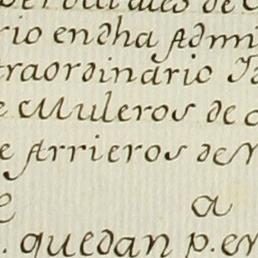 rio en dha Admi
traordinario
e Muleros de
e Arrieros de
a
. quedan p. en